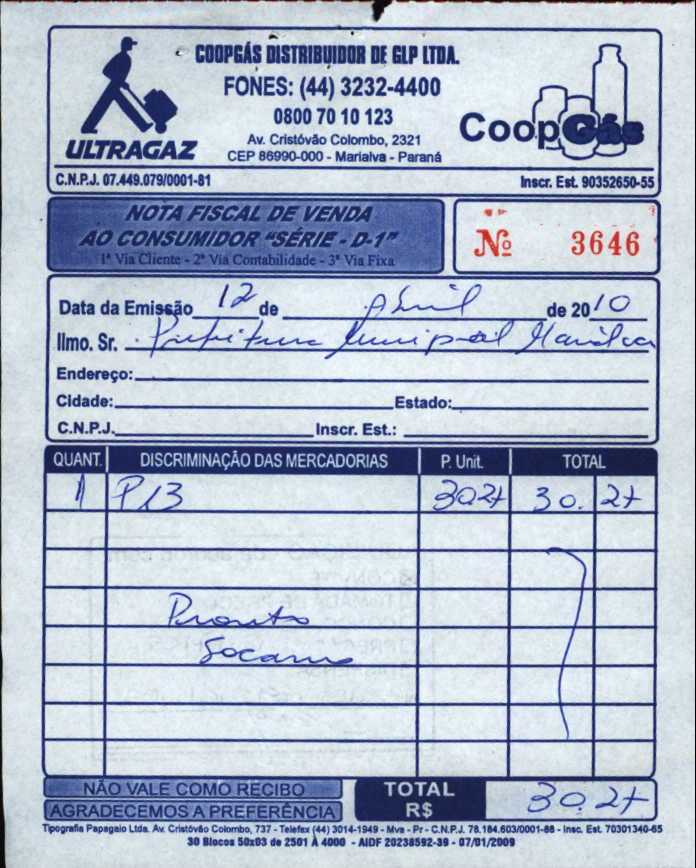 COOPGÁS DISTRIBUIDOR DE GLP LTDA.
FONES: (44) 3232-4400
0800 70 10 123
Av. Cristóvão Colombo, 2321
CEP 86990-000 - Marialva - Paraná
ULTRAGAZ
CoopGás
C.N.P.J. 07.449.079/0001-81 Inscr. Est. 90352650-55
NOTA FISCAL DE VENDA
AO CONSUMIDOR "SÉRIE - D-1"
1ª Via Cliente - 2ª Via Contabilidade - 3ª Via Fixa
Nº 3646
Data da Emissão 12 de Abril de 2010
Ilmo. Sr. Prefeitura Municipal Marialva
Endereço:
Cidade: Estado:
C.N.P.J. Inscr. Est.:
QUANT. DISCRIMINAÇÃO DAS MERCADORIAS P. Unit. TOTAL
1 P13 30,27 30,27
Pronto
Socorro
NÃO VALE COMO RECIBO
AGRADECEMOS A PREFERÊNCIA
TOTAL R$ 30,27
Tipografia Papagaio Ltda. Av. Cristóvão Colombo, 737 - Telefax (44) 3014-1949 - Mva - Pr - C.N.P.J. 78.184.603/0001-88 - Insc. Est. 70301340-65
30 Blocos 50x03 de 2501 À 4000 - AIDF 20238592-39 - 07/01/2009